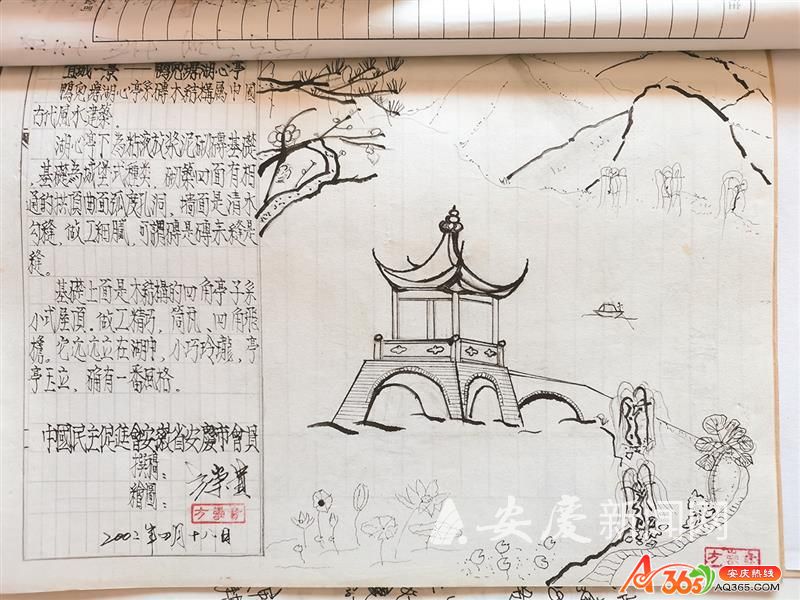 宜城一景——鴨兒塘湖心亭
鴨兒塘湖心亭系磚木結構爲中國
古代風木建築。
湖心亭下为粘液状浆泥砂磚基礎
基礎爲城堡式種类，砌築四面有相
通的拱頂曲面弧度孔洞，墙面是清水
勾縫，做工細膩，可謂磚是磚来縫是
縫。
基礎上面是木結構的四角亭子系
小式屋頂。做工精巧，筒瓦、四角飛
檐。它亢亢立在湖中，小巧玲瓏，亭
亭玉立，确有一番風格。
中國民主促進會安徽省安慶市會員
撰稿：
繪圖：
2002年四月十八日
安慶新闻网
A365 安庆热线
AQ365.COM